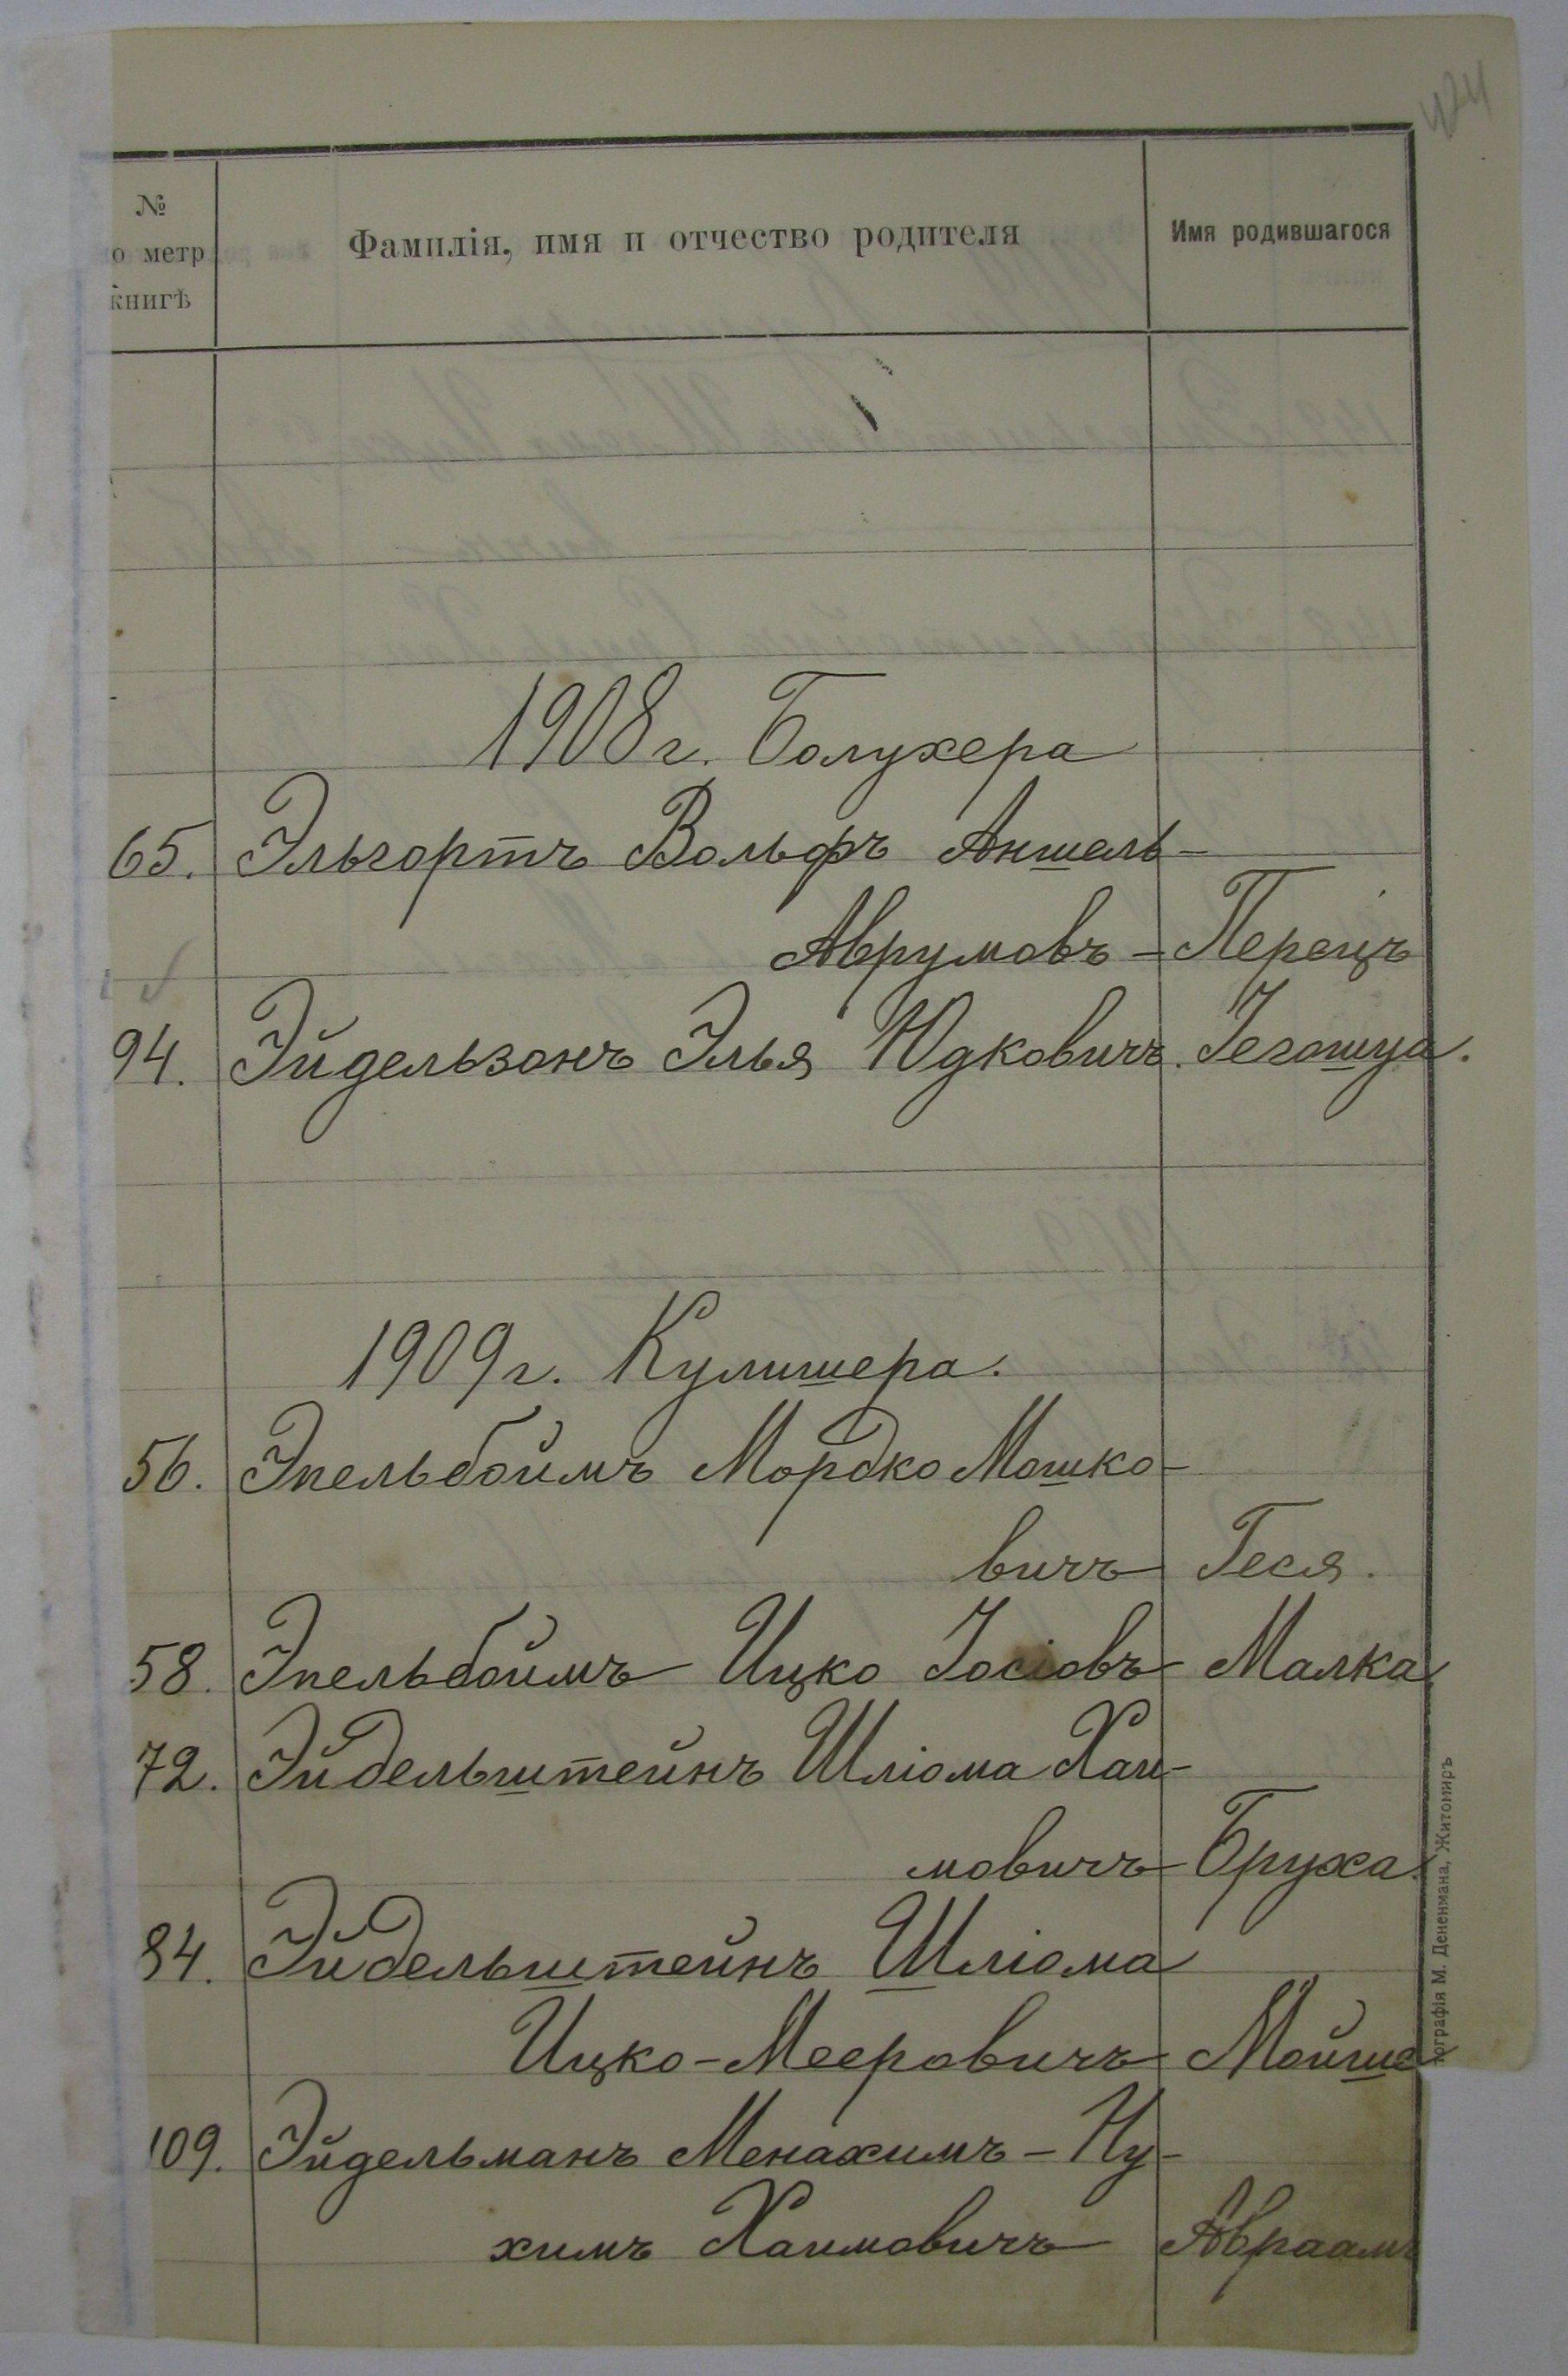 424
№
о метр
книгѣ
Фамилія, имя и отчество родителя
Имя родившагося
1908 г. Болухера
65. Эльгортъ Вольфъ Аншель-
Аврумовъ - Перецъ
94. Эйдельзонъ Элья Юдковичъ. Іегошуа.
1909 г. Кулишера.
56. Эпельбоймъ Мордко Мошко-
вичъ Геся.
58. Эпельбоймъ Ицко Іосіовъ Малка
72. Эйдельштейнъ Шліома Хаи-
мовичъ Бруха.
84. Эйдельштейнъ Шліома
Ицко-Мееровичъ Мойше
109. Эйдельманъ Менахимъ - Ну-
химъ Хаимовичъ Авраамъ
пографія М. Дененмана, Житомиръ